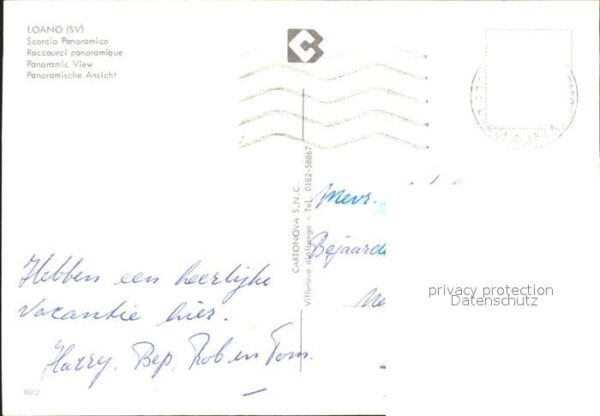 LOANO (SV)
Scorcio Panoramico
Raccourci panoramique
Panoramic View
Panoramische Ansicht
CARTONOVA S.N.C.
Villanova d'Albenga - Tel. 0182-58867
Mevr.
Bejaard
Me
Hebben een heerlijke
vacantie hier.
Harry, Bep, Rob en Tom.
802
privacy protection
Datenschutz